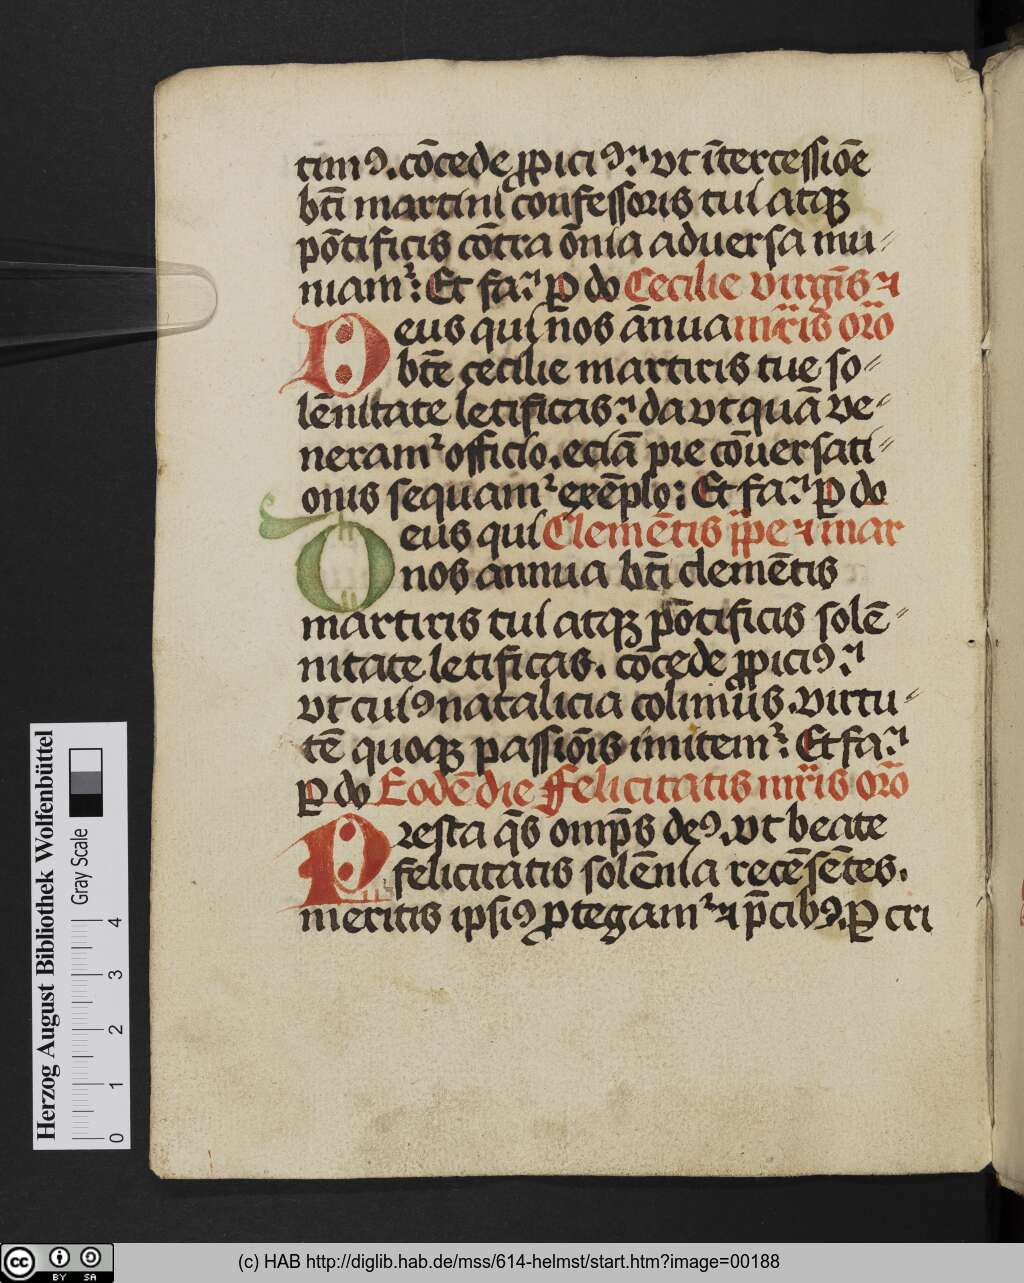 timꝰ. cōcede ꝓpiciꝰ: vt ītercessiōe
bti̅ martini confessoris tui atqꝫ
pōtificis cōtra ōnia aduersa mu-
niamᷣ: Et fa: ꝑ do Cecilie virgīs ⁊
Deus qui nos ānua mr̄is oro̅
btē cecilie martiris tue so-
lēnitate letificas: da vt quā ve-
neramᷣ officio. eciā pie cōuersati-
onis sequamᷣ exēplo: Et fa: ꝑ do
Deus qui Clemētis pp̄e ⁊ mar̄
nos annua bti̅ clemētis
martiris tui atqꝫ pōtificis solē-
nitate letificas. cōcede ꝓpiciꝰ:
vt cuiꝰ natalicia colimus. virtu-
tē quoqꝫ passiōis imitemᷣ: Et fa:
ꝑ do Eodē die Felicitatis mr̄is oro̅
Presta q̄s omp̄s deꝰ. vt beate
felicitatis solēnia recēsētes.
meritis ipsiꝰ ꝓtegamᷣ ⁊ p̄cibꝰ. ꝑ cri
Herzog August Bibliothek Wolfenbüttel
Gray Scale
0 1 2 3 4
cc BY SA
(c) HAB http://diglib.hab.de/mss/614-helmst/start.htm?image=00188